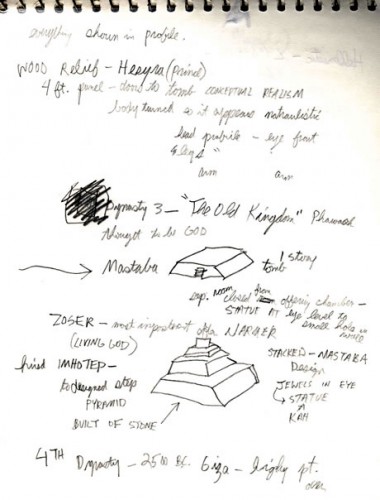 everything shown in profile.
WOOD Relief - Hesyra (prince)
4 ft. panel - door to tomb CONCEPTUAL REALISM
body trunk so it appears naturalistic
head profile - eye front
& legs "
arm arm
Dynasty 3 - "The Old Kingdom" Pharoahs
thought to be GOD
Mastaba
1 story
tomb
sep. room closed from offering chamber -
STATUE AT eye level to
small hole in
ZOSER - most important after NARMER
(LIVING GOD)
hired IMHOTEP -
to designed step
PYRAMID
BUILT OF STONE
STACKED - MASTABA
Design
JEWELS IN EYE
STATUE
A
KAH
4TH Dynasty - 2500 BC. Giza - highly pt.